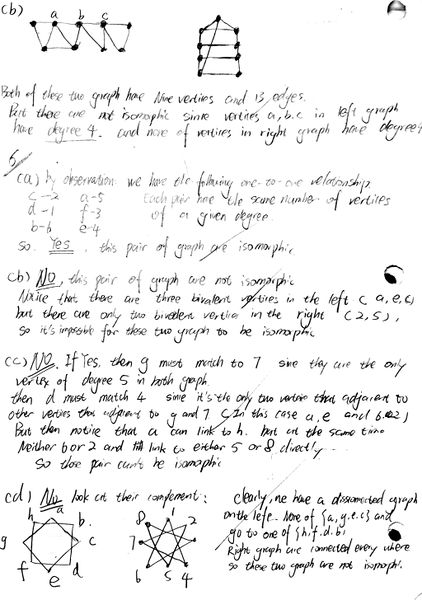 (b)
a b c
Both of these two graph have Nine vertices and 13 edges.
But there are not isomorphic sinse vertices a, b, c in left graph
have degree 4. and none of vertices in right graph have degree 4
5
(a) by observation we have the following one-to-one relationship
c-2 a-5 each pair have the same number of vertices
d-1 f-3 of a given degree
b-6 e-4
so. Yes, this pair of graph are isomorphic
(b) No, this pair of graph are not isomorphic
Notice that there are three bivalent vertices in the left (a, e, c)
but there are only two bivalent vertices in the right (2,5),
so it's impossible for these two graph to be isomorphic
(c) NO. If Yes, then g must match to 7 sine they are the only
vertex of degree 5 in both graph
then d must match 4 since it's the only two vertice that adjacent to
other vertices that adjacent to g and 7 (In this case a, e and 6.)
But then notice that a can link to h. but at the same time
Neither 6 or 2 and link to either 5 or 8 directly..
So those pair can't be isomophic
(d) No look at their complement:
h a b. c d e f g
8 1 2 7 6 5 4
clearly, we have a dissonnected graph
on the left.. None of {a, g. e. c} and
go to one of {h, f. d. b}
Right graph are connected every where
so these two graph are not isomorphi.